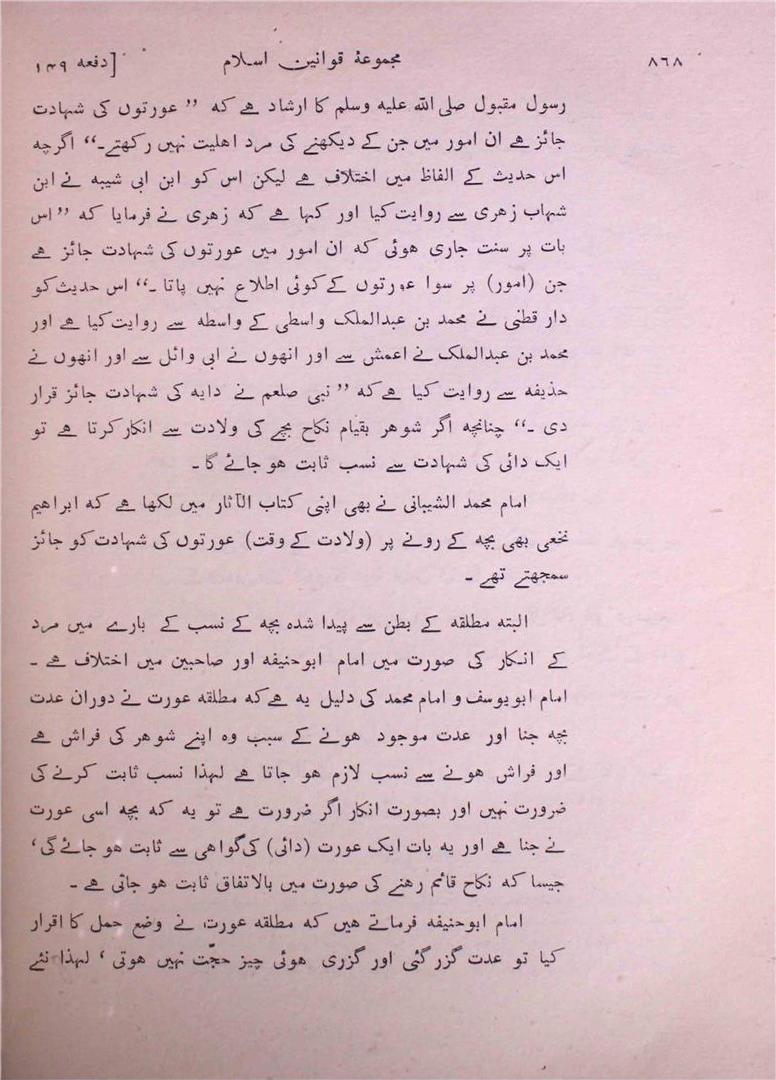 ۸۶۸ مجموعۂ قوانین اسلام [دفعه ۱۴۹
رسول مقبول صلی الله علیه وسلم کا ارشاد ہے که ’’ عورتوں کی شہادت
جائز ہے ان امور میں جن کے دیکھنے کی مرد اہلیت نہیں رکھتے۔‘‘ اگرچه
اس حدیث کے الفاظ میں اختلاف ہے لیکن اس کو ابن ابی شیبه نے ابن
شہاب زہری سے روایت کیا اور کہا ہے که زہری نے فرمایا که ’’ اس
بات پر سنت جاری ہوئی که ان امور میں عورتوں کی شہادت جائز ہے
جن (امور) پر سوا عورتوں کے کوئی اطلاع نہیں پاتا ۔‘‘ اس حدیث کو
دار قطنی نے محمد بن عبدالملک واسطی کے واسطه سے روایت کیا ہے اور
محمد بن عبدالملک نے اعمش سے اور انھوں نے ابی وائل سے اور انھوں نے
حذیفه سے روایت کیا ہے که ’’ نبی صلعم نے دایه کی شہادت جائز قرار
دی ۔‘‘ چنانچه اگر شوہر بقیام نکاح بچے کی ولادت سے انکار کرتا ہے تو
ایک دائی کی شہادت سے نسب ثابت ہو جائے گا ۔
امام محمد الشیبانی نے بھی اپنی کتاب الآثار میں لکھا ہے که ابراہیم
نخعی بھی بچه کے رونے پر (ولادت کے وقت) عورتوں کی شہادت کو جائز
سمجھتے تھے ۔
البته مطلقه کے بطن سے پیدا شدہ بچه کے نسب کے بارے میں مرد
کے انکار کی صورت میں امام ابوحنیفه اور صاحبین میں اختلاف ہے ۔
امام ابو یوسف و امام محمد کی دلیل یه ہے که مطلقه عورت نے دوران عدت
بچه جنا اور عدت موجود ہونے کے سبب وہ اپنے شوہر کی فراش ہے
اور فراش ہونے سے نسب لازم ہو جاتا ہے لہذا نسب ثابت کرنے کی
ضرورت نہیں اور بصورت انکار اگر ضرورت ہے تو یه که بچه اسی عورت
نے جنا ہے اور یه بات ایک عورت (دائی) کی گواہی سے ثابت ہو جائے گی،
جیسا که نکاح قائم رہنے کی صورت میں بالاتفاق ثابت ہو جاتی ہے ۔
امام ابوحنیفه فرماتے ہیں که مطلقه عورت نے وضع حمل کا اقرار
کیا تو عدت گزر گئی اور گزری ہوئی چیز حجّت نہیں ہوتی ، لہذا نئے